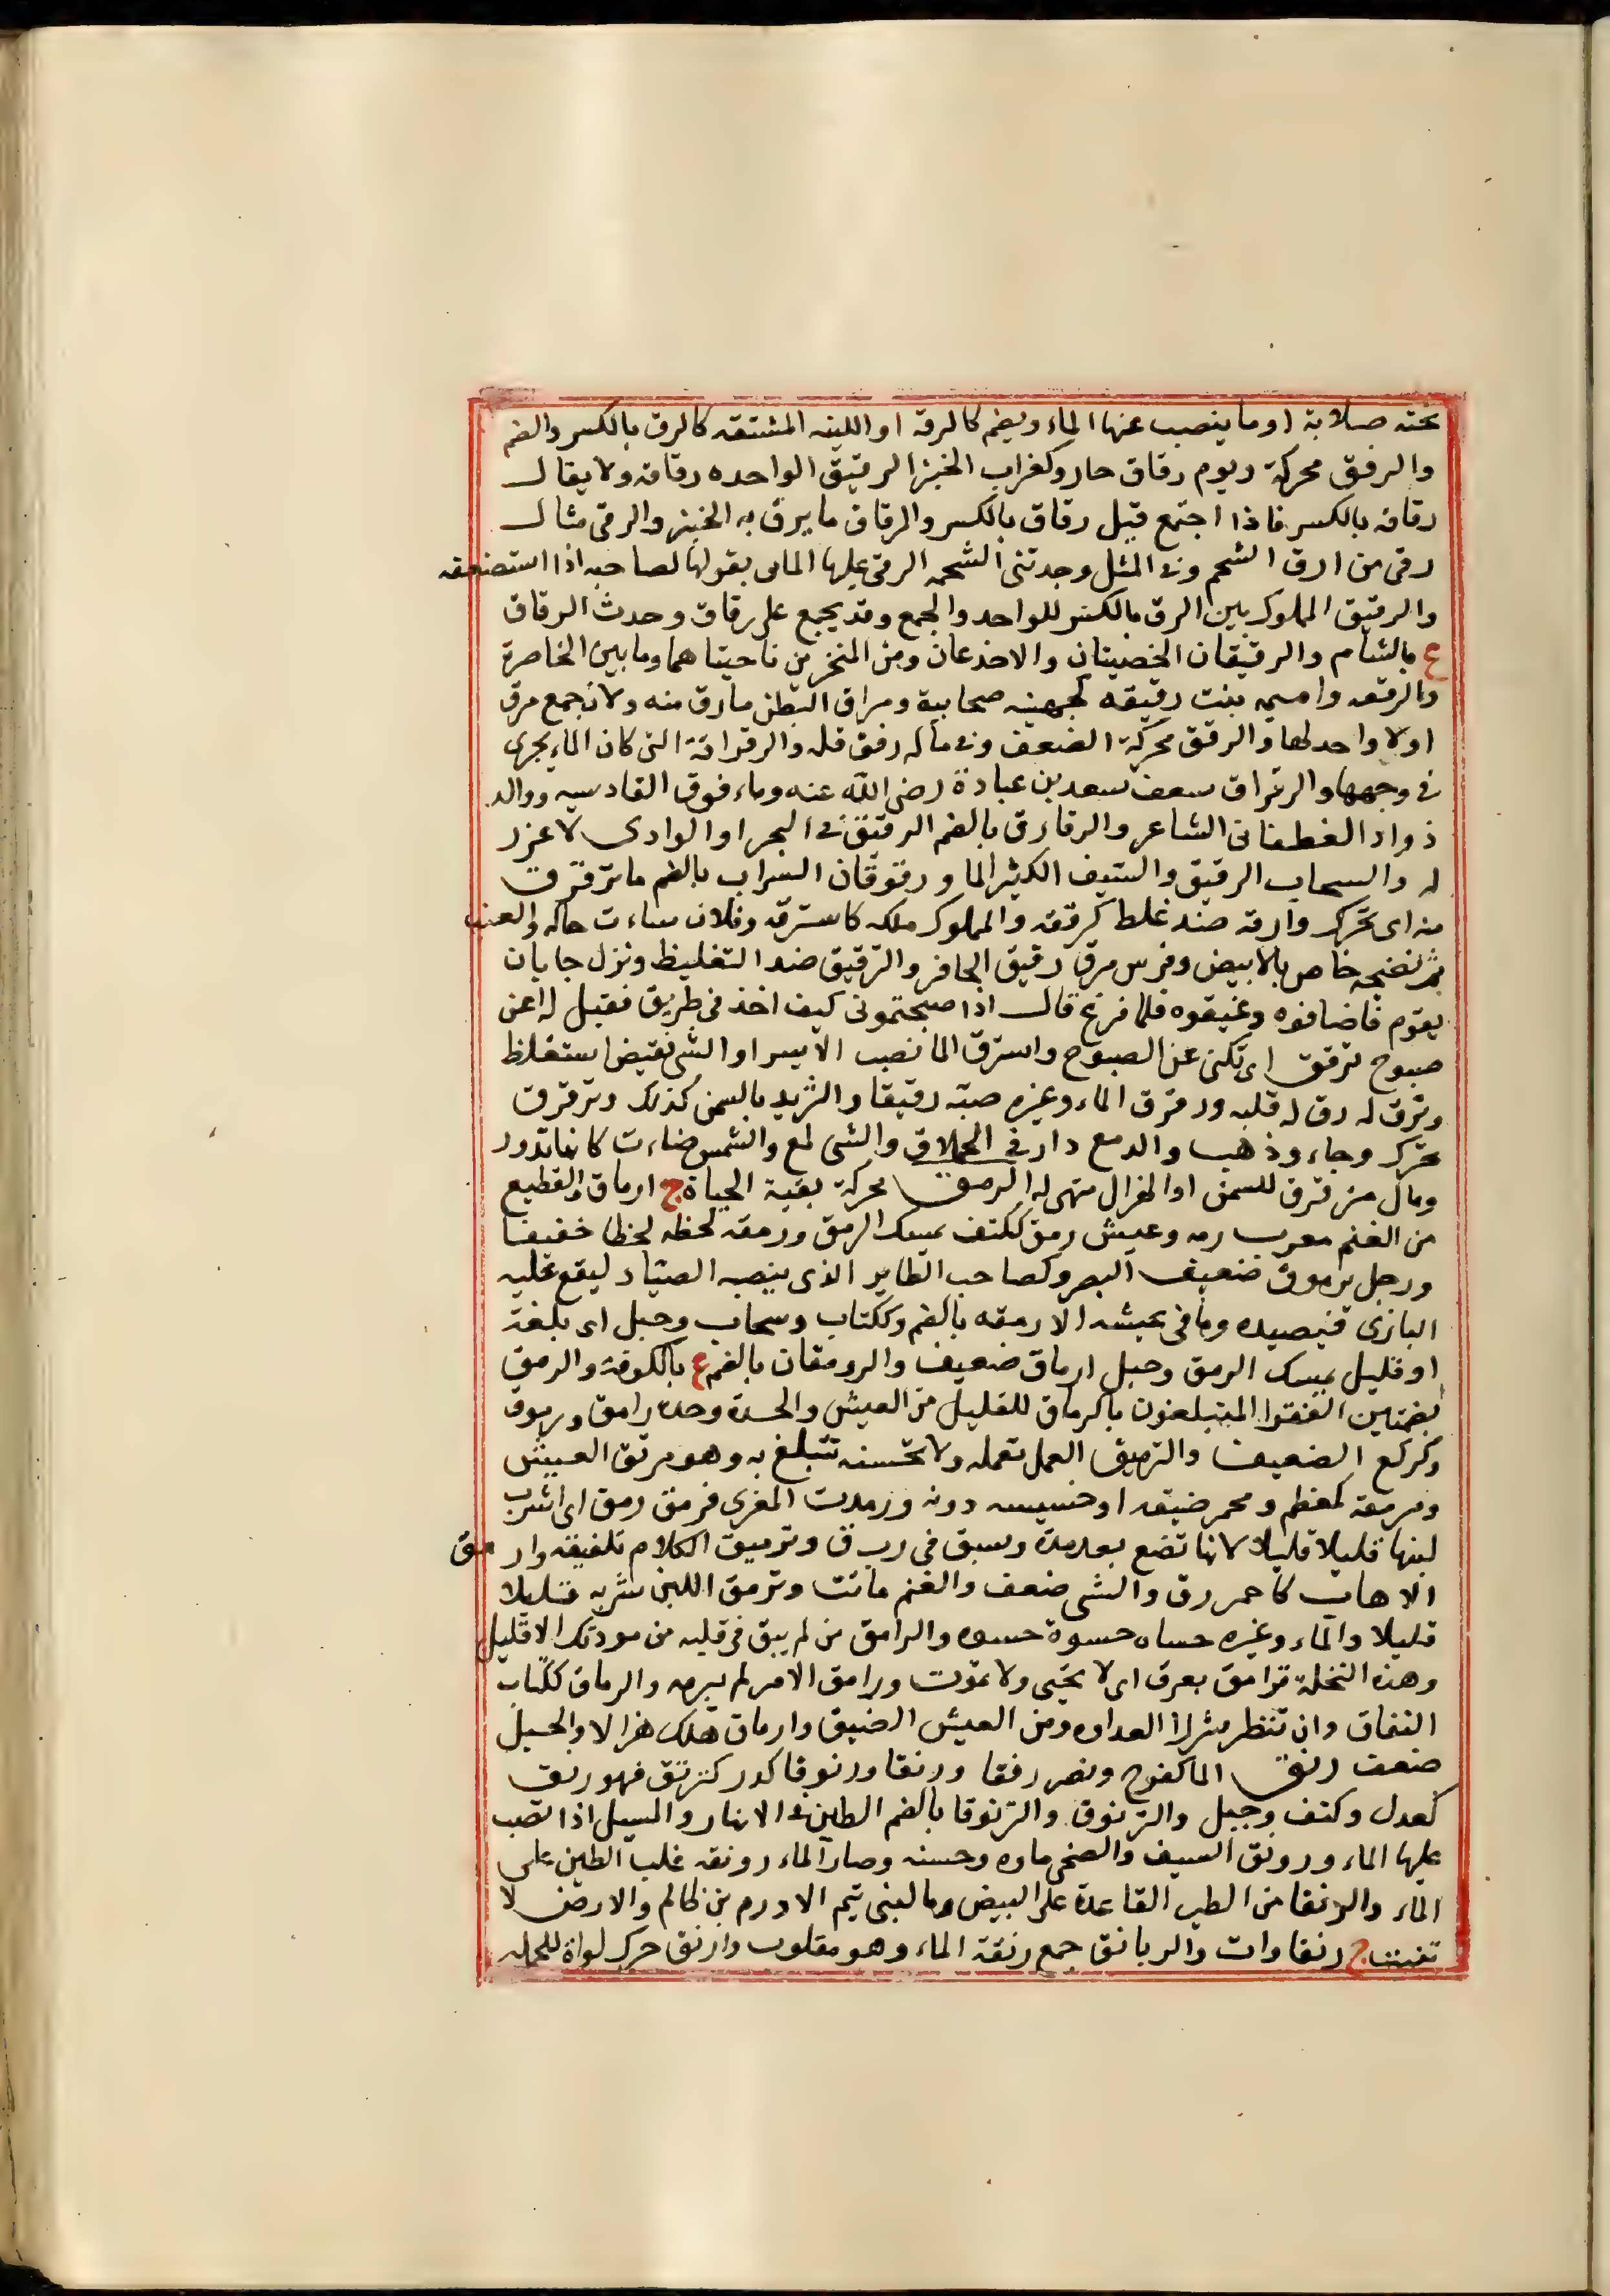 تحته صلابة او ما ينصب عنها الماء ويضم كالرقة او اللينه المتسقه كالرق بالكسر والضم
والرقق محركة ويوم رقاق حار وكغراب الخبز الرقيق الواحده رقاقه ولا يقال
رقاقه بالكسر فاذا اجتمع قيل رقاق بالكسر والمرقاق ما يرق به الخبز والرقى مثال
رقى من ارق الشحم وفى المثل وجدتنى الشحمه الرقى عليها الماتى يقولها لصاحبه اذا استضعفه
والرقيق المملوك بين الرق بالكسر للواحد والجمع وقد يجمع على رقاق وحدث الرقاق
ع بالشام والرقيقان الخصيتان والاخدعان ومن المنخرين ناحيتاهما وما بين الخاصرة
والرفغه واميمه بنت رقيقه كجهينه صحابية ومراق البطن ما رق منه ولا تجمع مرق
اولا واحد لها والرقق محركة الضعف وفى ماله رقق قله والرقراقة التى كان الماء يجرى
فى وجهها والرقراق سيف سعد بن عبادة رضى الله عنه وماء فوق القادسيه ووالد
ذواد الغطفانى الشاعر والرقارق بالضم الرقيق فى البحر او الوادى لا غزر
له والسحاب الرقيق والسيف الكثير الما ورقرقان السراب بالضم ما ترقرق
منه اى تحرك وارقه ضد غلط كرققه والمملوك ملكه كاسترقه وفلان ساءت حاله والعنب
تم نضجه خاص بالابيض وفرس مرق رقيق الحافر والترقيق ضد التغليظ ونزل جابان
بقوم فاضافوه وغبقوه فلما فرغ قال اذا صبحتمونى كيف اخذ فى طريق فقيل له اعن
صبوح ترقق اى تكنى عن الصبوح واسترق الما نضب الا يسرا والشى نقيض استغلظ
وترقق له رق له قلبه ورقرق الماء وغيره صبه رقيقا والثريد بالسمن كذلك وترقرق
تحرك وجاء وذهب والدمع دار فى الحملاق والشى لمع والشمس ضاءت كانها تدور
ومال مترقرق للسمن او الهزال متهى له الرمق محركة بقية الحياة ج ارماق والقطيع
من الغنم معرب رمه وعيش رمق ككتف يمسك الرمق ورمقه لحظه لحظا خفيفا
ورجل يرموق ضعيف البصر وكصاحب الطاير الذى ينصبه الصياد ليقع عليه
البازى فيصيده وما فى عيشه الا رمقه بالضم وككتاب وسحاب وجبل اى بلغة
او قليل يمسك الرمق وحبل ارماق ضعيف والرومقان بالضم ع بالكوفة والرمق
بضمتين الفقرا المتبلغون بالرماق للقليل من العيش والحسدة وحده رامق ورموق
وكركع الضعيف والترميق العمل تعمله ولا تحسنه تتبلغ به وهو مرمق العيش
ومرمقة كمعظم ومحمر ضيقه او خسيسه دونه ورمدت المعزى فرمق رمق اى اشرب
لبنها قليلا قليلا لانها تضع بعد مدة وسبق فى ر ب ق وترميق الكلام تلفيقه وارمق
الاهاب كاحمر رق والشى ضعف والغنم ماتت وترمق اللبن شربه قليلا
قليلا والماء وغيره حساه حسوة حسوه والرامق من لم يبق فى قلبه من مودتك الا قليل
وهذه النخلة ترامق بعرق اى لا تحيى ولا تموت ورامق الامر لم يبرمه والرماق ككتاب
النفاق وان تنظر شزرا نظر العداوه ومن العيش الضيق وارماق هلك هزالا والحبل
ضعف رنق الما كفرح ونصر رنقا ورنقا ورنوقا كدر كترنق فهو رنق
كعدل وكتف وجبل والترنوق والترنوقا بالضم الطين فى الانهار والمسيل اذا نضب
عليها الماء ورونق السيف والضحى ماوه وحسنه وصار الماء رونقه غلب الطين على
الماء والرنقا من الطير القاعدة على البيض وما لبنى تيم الادرم بن ظالم والارض لا
تنبت ج رنقاوات والريانق جمع رنقة الماء وهو مقلوب وارنق حرك لواه للحمله